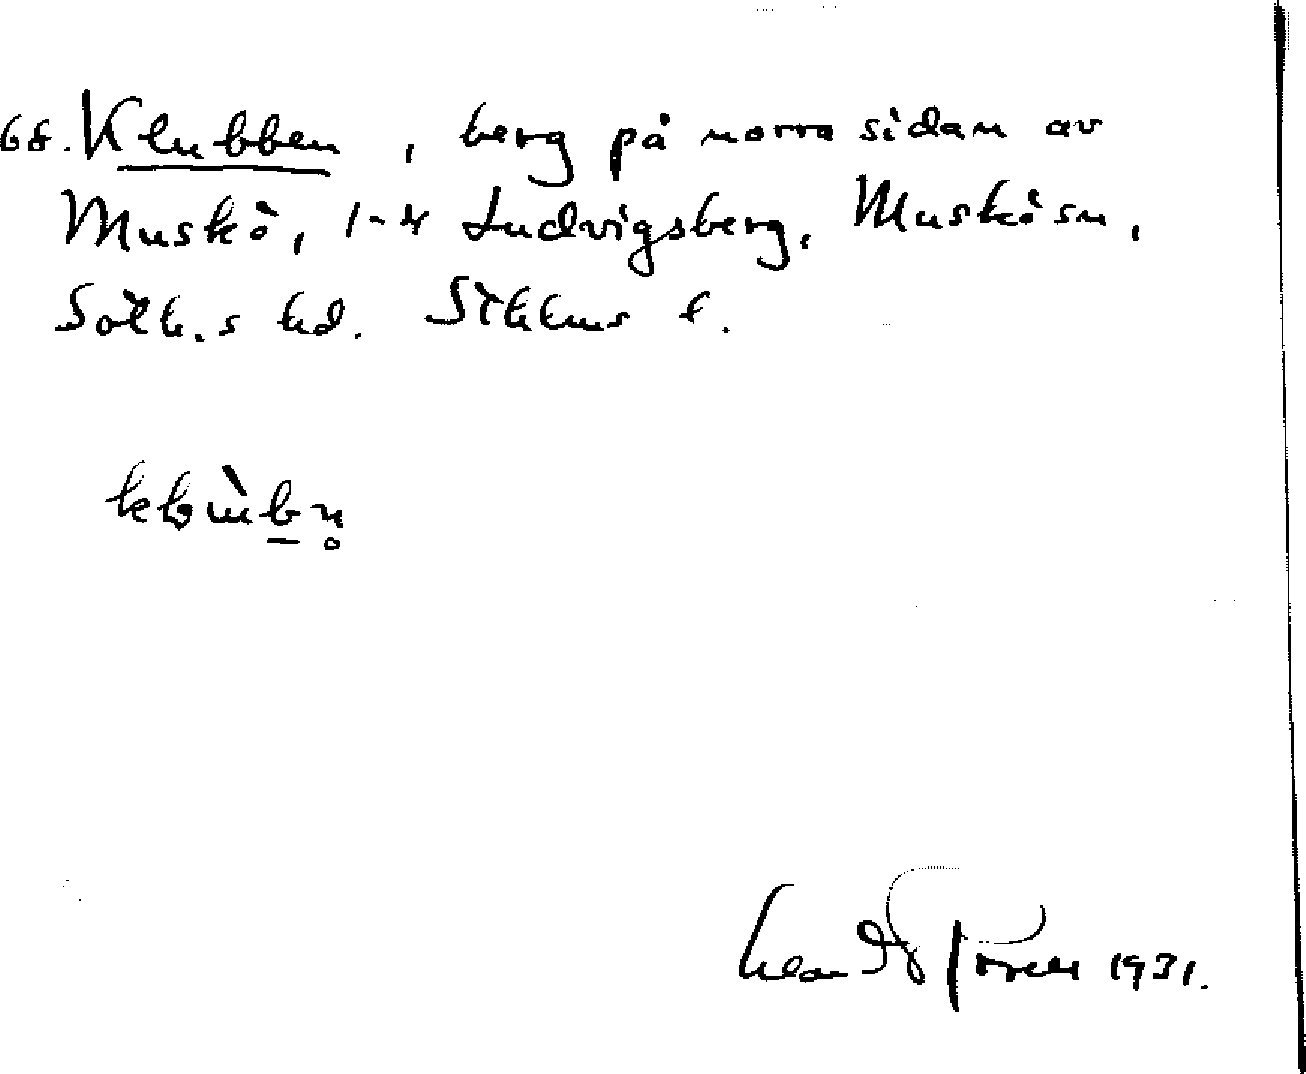 68. Klubben, berg på norra sidan av
Muskö, 1-4 Ludvigsberg, Muskö sn,
Soth.s hd. Sthlms l.
1931.